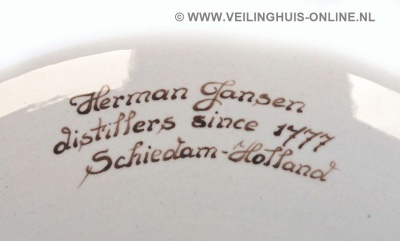 © WWW.VEILINGHUIS-ONLINE.NL
Herman Jansen
distillers since 1777
Schiedam-Holland